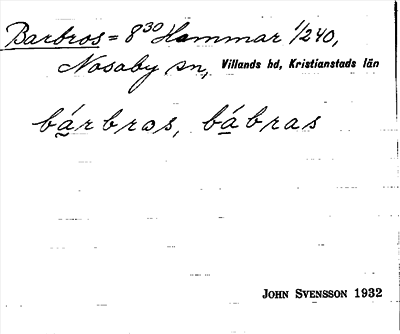 Barbros = 8³⁰ Hammar 1/240,
Nosaby sn, Villands hd, Kristianstads län
bárbros, bábras
JOHN SVENSSON 1932